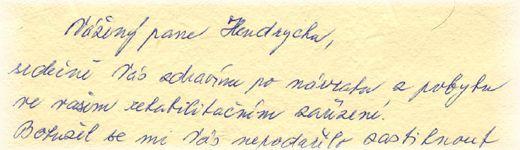 Vážený pane Hendrycha,
srdečně Vás zdravím po návratu z pobytu
ve vašem rehabilitačním zařízení.
Bohužel se mi Vás nepodařilo zastihnout